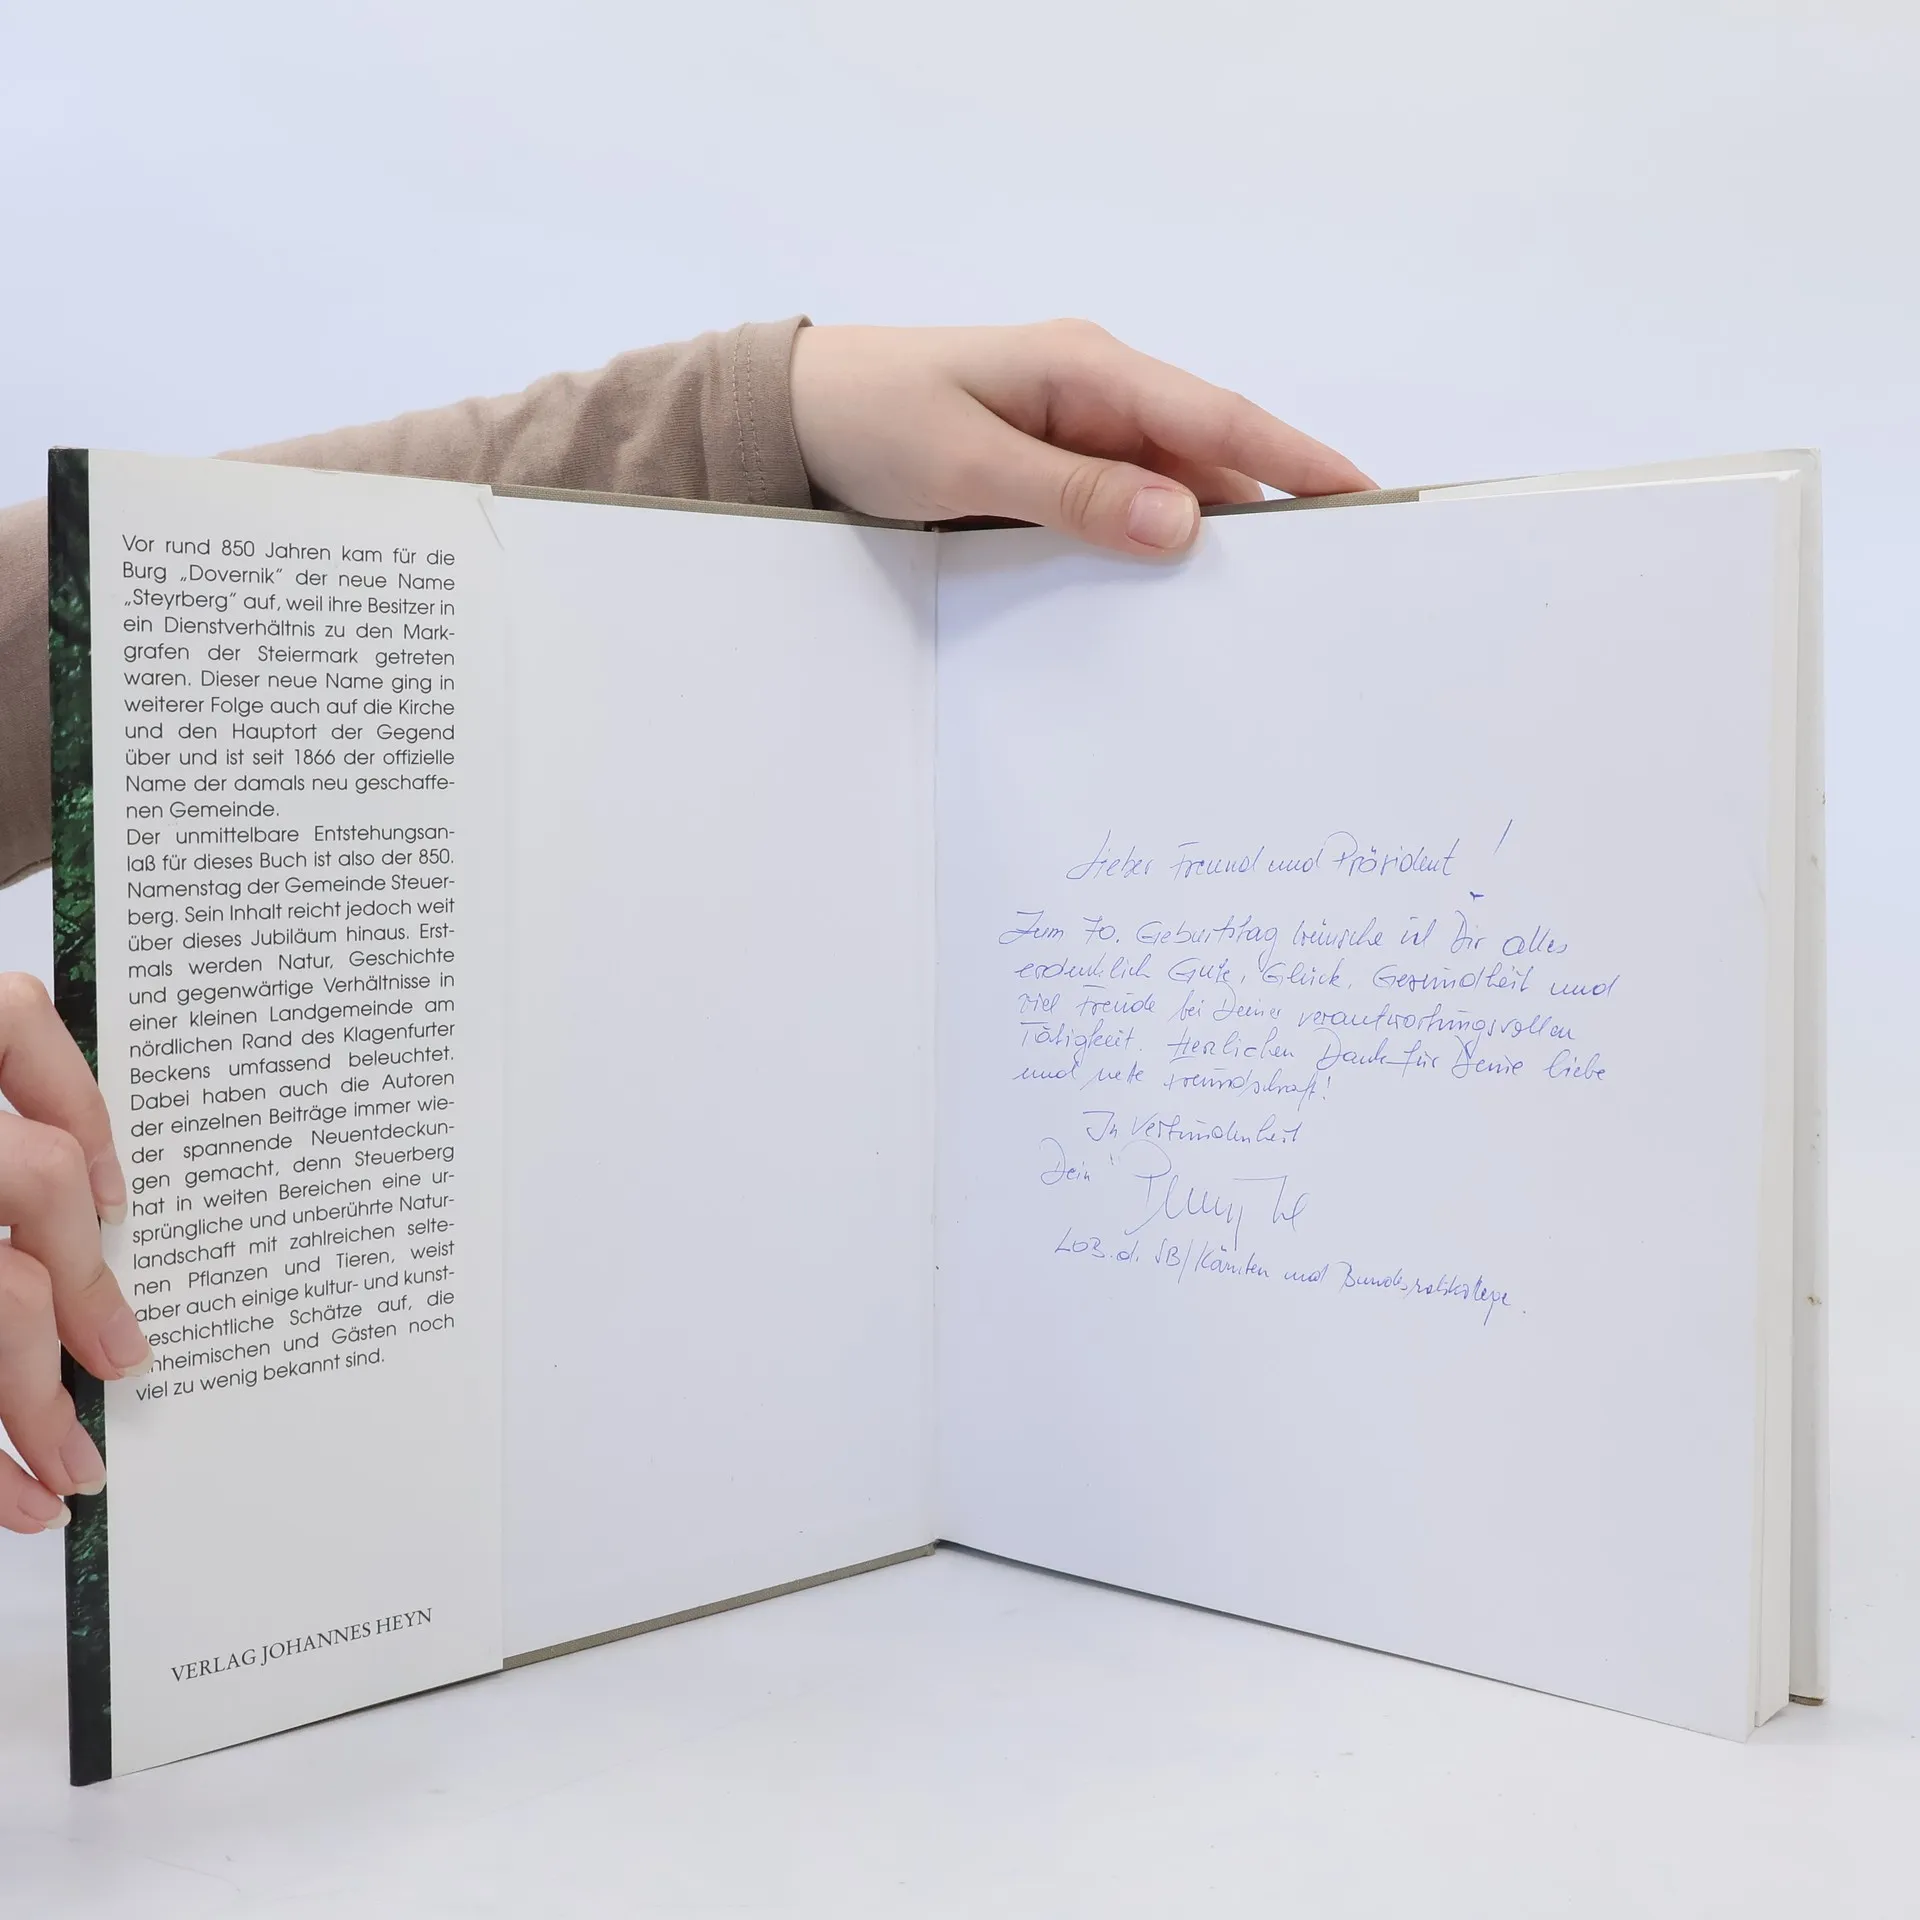 Vor rund 850 Jahren kam für die
Burg „Dovernik“ der neue Name
„Steyrberg“ auf, weil ihre Besitzer in
ein Dienstverhältnis zu den Mark-
grafen der Steiermark getreten
waren. Dieser neue Name ging in
weiterer Folge auch auf die Kirche
und den Hauptort der Gegend
über und ist seit 1866 der offizielle
Name der damals neu geschaffe-
nen Gemeinde.
Der unmittelbare Entstehungsan-
laß für dieses Buch ist also der 850.
Namenstag der Gemeinde Steuer-
berg. Sein Inhalt reicht jedoch weit
über dieses Jubiläum hinaus. Erst-
mals werden Natur, Geschichte
und gegenwärtige Verhältnisse in
einer kleinen Landgemeinde am
nördlichen Rand des Klagenfurter
Beckens umfassend beleuchtet.
Dabei haben auch die Autoren
der einzelnen Beiträge immer wie-
der spannende Neuentdeckun-
gen gemacht, denn Steuerberg
hat in weiten Bereichen eine ur-
sprüngliche und unberührte Natur-
landschaft mit zahlreichen selte-
nen Pflanzen und Tieren, weist
aber auch einige kultur- und kunst-
geschichtliche Schätze auf, die
nheimischen und Gästen noch
viel zu wenig bekannt sind.
VERLAG JOHANNES HEYN
Lieber Freund und Präsident!
Zum 70. Geburtstag wünsche ich Dir alles
erdenklich Gute, Glück, Gesundheit und
viel Freude bei Deiner verantwortungsvollen
Tätigkeit. Herzlichen Dank für Deine liebe
und nette Freundschaft!
In Verbundenheit
Dein
LOB.d. SB/Kärnten und Bundesratskollege.